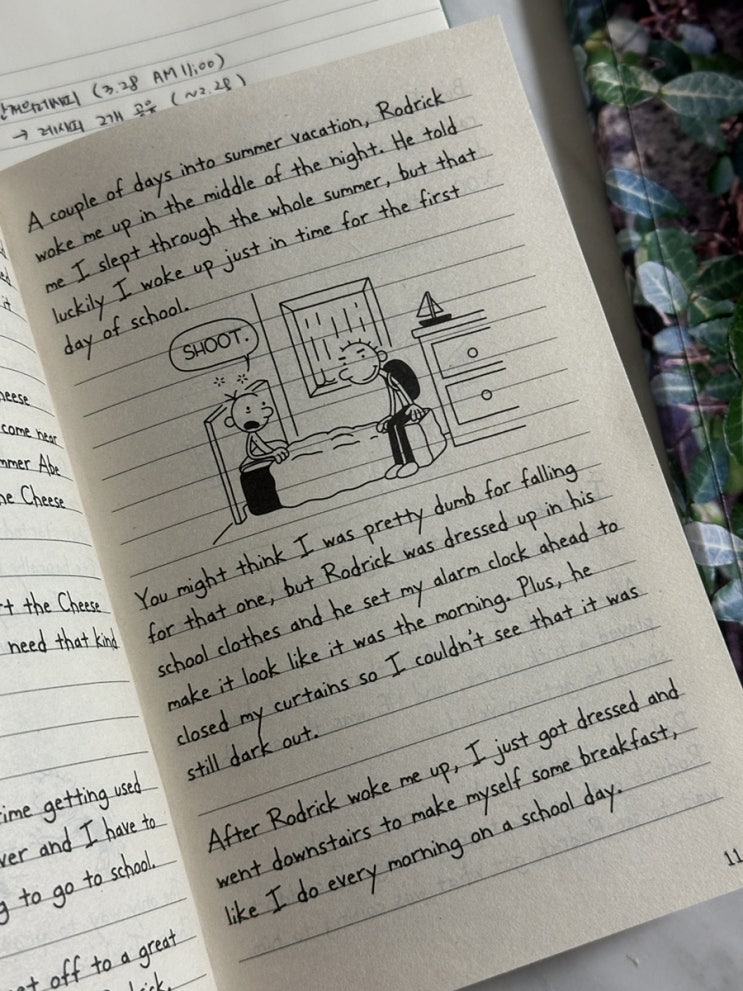 (3.28 AM 11:00)
→ (~2.28)
A couple of days into summer vacation, Rodrick
woke me up in the middle of the night. He told
me I slept through the whole summer, but that
luckily I woke up just in time for the first
day of school.
SHOOT.
You might think I was pretty dumb for falling
for that one, but Rodrick was dressed up in his
school clothes and he set my alarm clock ahead to
make it look like it was the morning. Plus, he
closed my curtains so I couldn't see that it was
still dark out.
After Rodrick woke me up, I just got dressed and
went downstairs to make myself some breakfast,
like I do every morning on a school day.
11
come near
mmer Abe
he Cheese
t the Cheese
need that kind
ime getting used
ver and I have to
g to go to school.
t off to a great